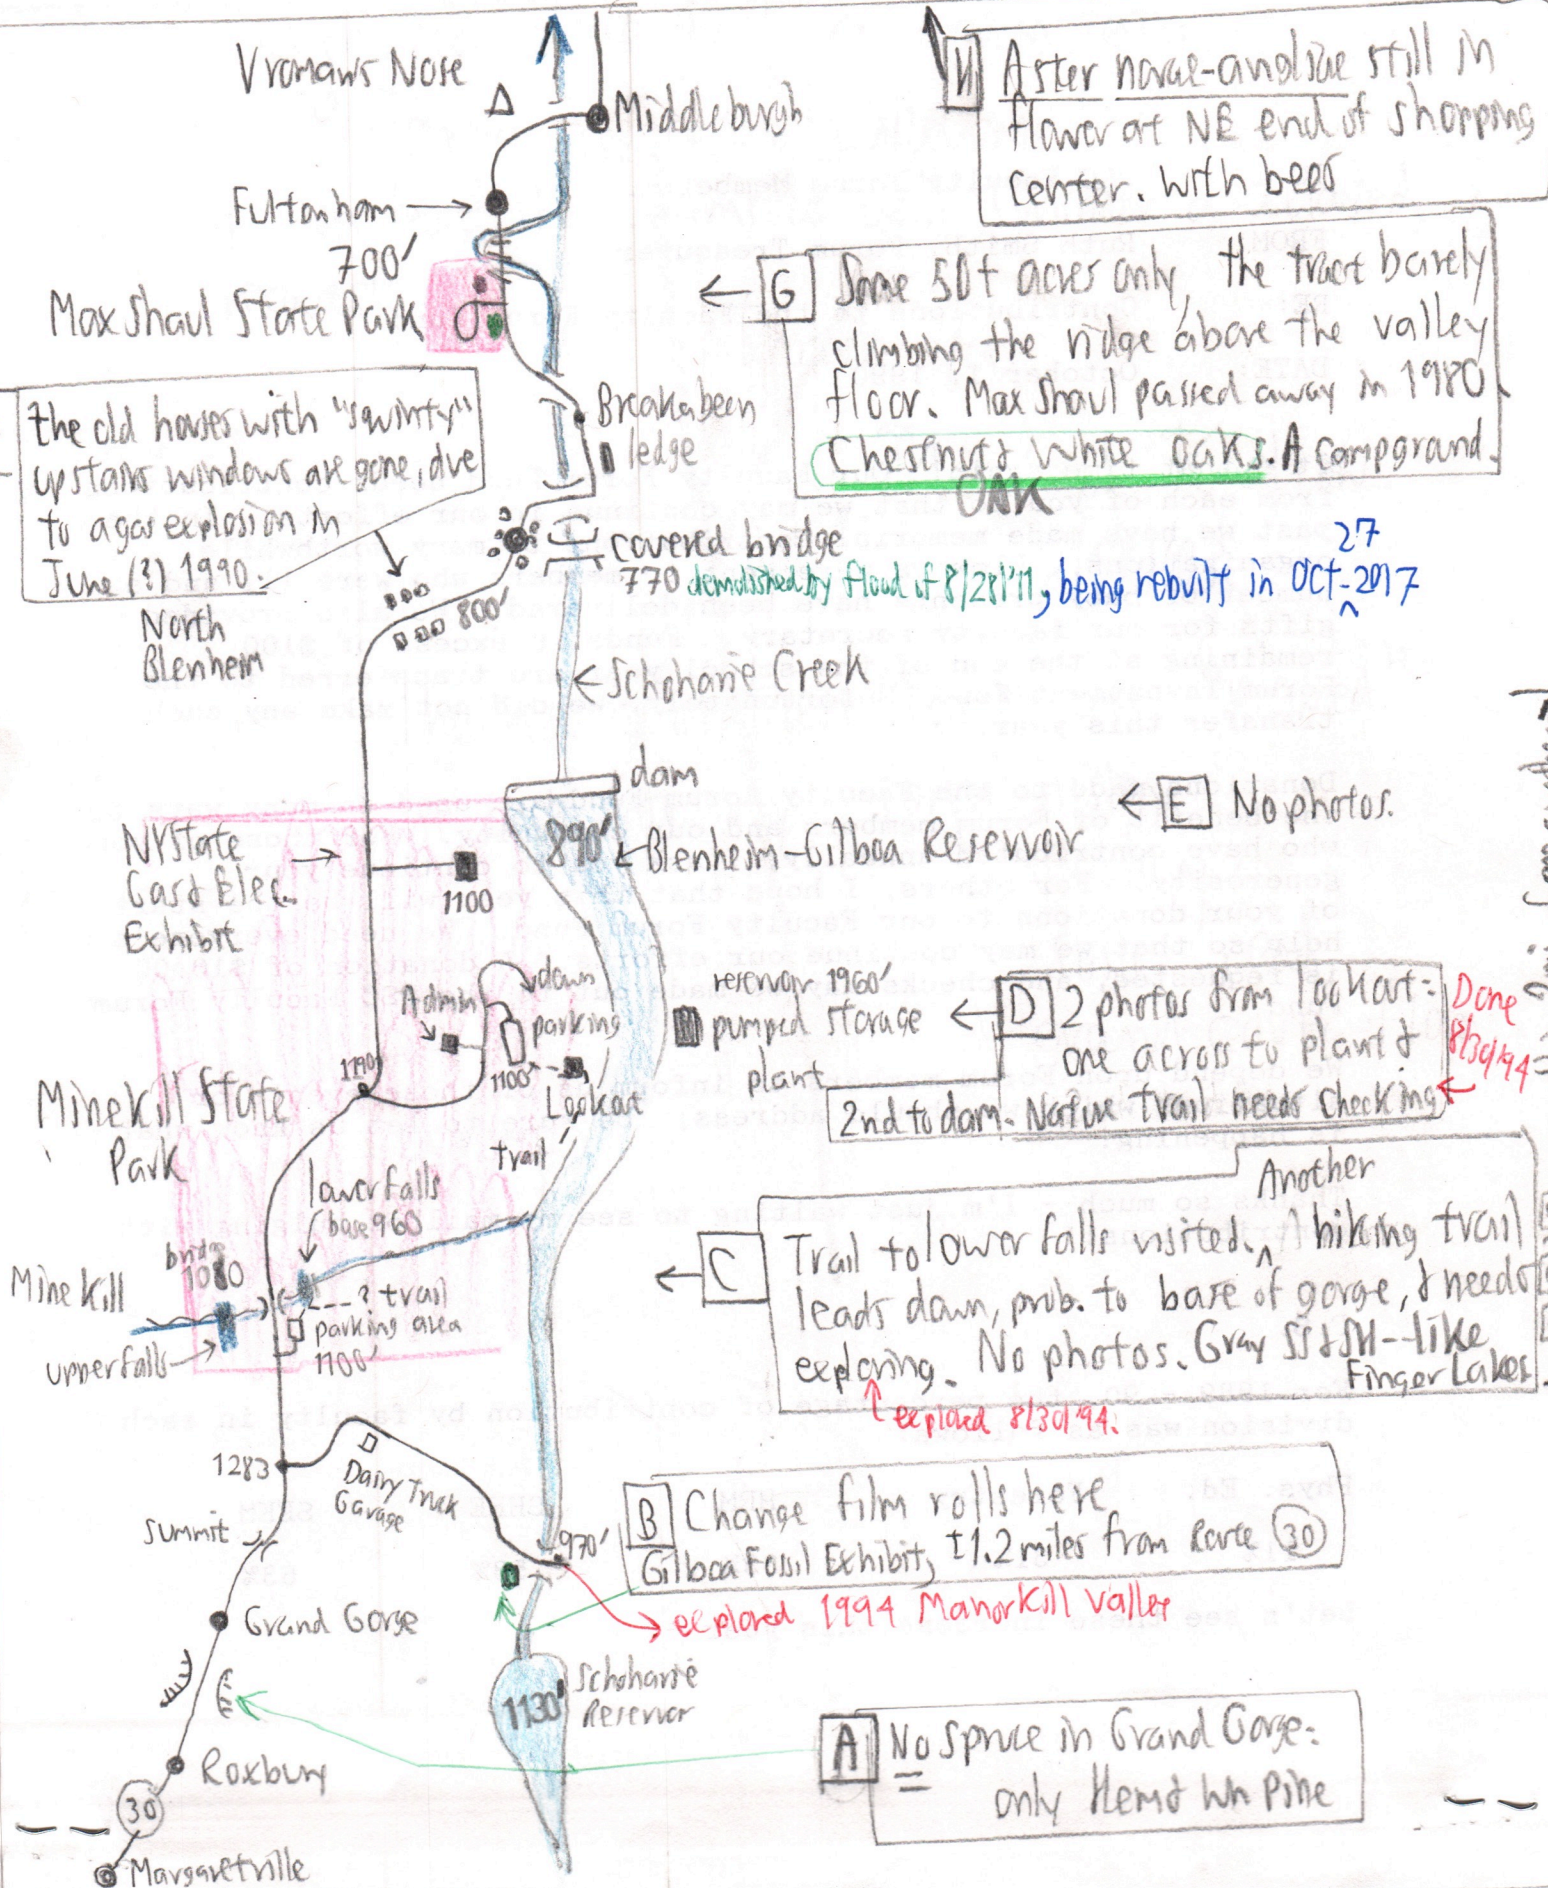 Vroman's Nose
Middleburgh
Fultonham
700'
Max Shaul State Park
H
Aster novae-angliae still in
flower at NE end of shopping
center. with bees
G
Some 50± acres only, the tract barely
climbing the ridge above the valley
floor. Max Shaul passed away in 1980
Chestnut & White oaks. A campground.
OAK
Breakabeen
ledge
the old houses with "squinty"
upstairs windows are gone, due
to a gas explosion in
June (3) 1990.
covered bridge
770 demolished by flood of 8/28/'11, being rebuilt in Oct-2017
27
800'
North
Blenheim
Schoharie Creek
dam
890'
Blenheim-Gilboa Reservoir
E
No photos.
NYState
Gas & Elec.
Exhibit
1100
down
Admin
parking
1100'
Lookout
1190'
reservoir 1960'
pumped storage
plant
D
2 photos from lookout:
one across to plant &
2nd to dam. Nature trail needs checking
Done
8/30/94
Minekill State
Park
trail
lower falls
base 960
bridge
Mine Kill
upper falls
? trail
parking area
1100'
C
Another
Trail to lower falls visited. ^ hiking trail
leads down, prob. to base of gorge, & needs
exploring. No photos. Gray SS & SH--like
Finger Lakes.
explored 8/30/'94.
1283
Dairy Truck
Garage
summit
970'
B
Change film rolls here
Gilboa Fossil Exhibit, ±1.2 miles from Route 30
explored 1994 Manorkill Valley
Grand Gorge
Schoharie
Reservoir
1130'
A
No spruce in Grand Gorge:
only Hem & Wh Pine
Roxbury
30
Margaretville